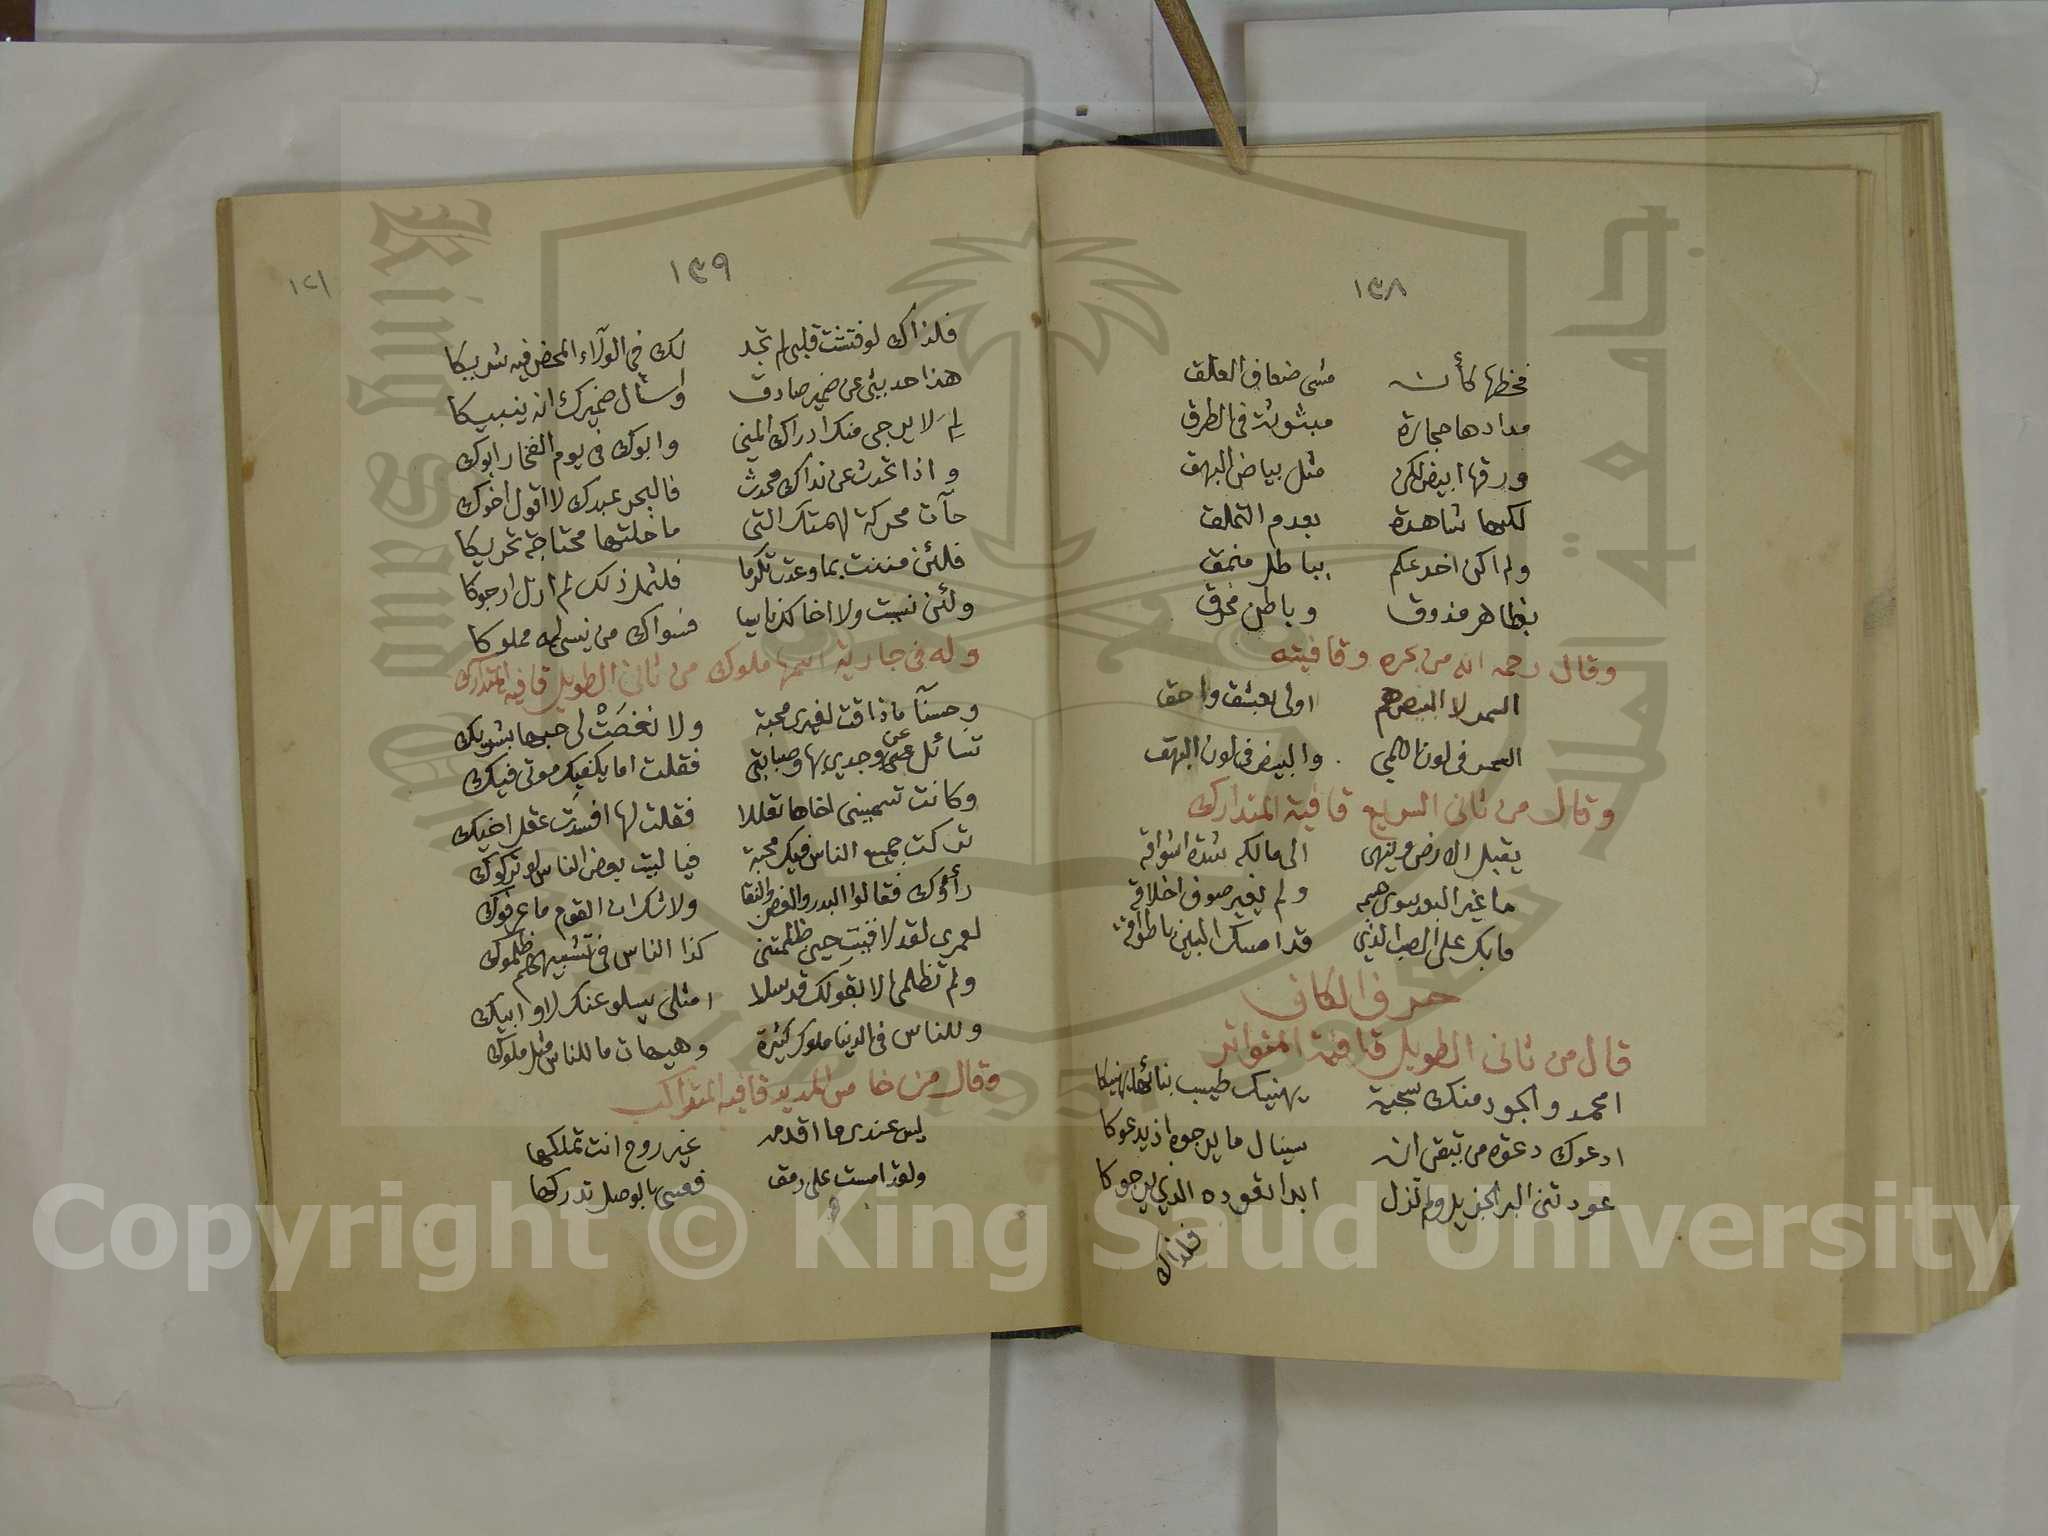 ١٣٨
فخطها كأنه مشى ضعاف العلق
مدادها حجارة مبثوثة في الطرق
ورقها ابيض لكن مثل بياض البهق
لكنها شاهدة بعدم التملق
ولم اكن اخدعكم بباطل منمق
بظاهر مذوق وباطن محرق
وقال رحمه الله من بحره وقافيته
السمر لا البيض هم اولى بعشق واحق
السمر في لون اللمى والبيض في لون البهق
وقال من ثانى السريع قافية المتدارك
يقبل الارض وينهى الى مالكه شدة اشواقه
ما غير البعد سوى جسمه ولم يغير صفو اخلاقه
فابك على الصب الذي قد امسك البين باطواقه
حرف الكاف
قال من ثانى الطويل قافية المتواتر
امحمد والجود منك سجية يهنيك طيب ثنائها يهنيكا
ادعوك دعوة من تيقن انه سينال ما يرجوه اذ يدعوكا
عودتنى البر الجزيل ولم تزل ابدا تعوده الذي يرجوكا
فلذاك
١٣٩
١٢١
فلذاك لو فتشت قلبى لم تجد لك في الولآء المحض فيه شريكا
هذا حديثى عن ضمير صادق واسأل ضميرك انه ينبيكا
لِمَ لا يرجى منك ادراك المنى وابوك في يوم الفخار ابوك
واذا تحدث عن نداك محدث فالبحر عبدك لا اقول اخوك
حآت محركة لهمتك التى ما خلتها محتاجة تحريكا
فلئن مننت بما وعدت تكرما فلمثل ذلك لم ازل ارجوكا
ولئن نسيت ولا اخالك ناسيا فسواك من نسى له مملوكا
وله في جارية اسمها ملوك من ثانى الطويل قافية المتدارك
وحسنآ ما ذاقت لغيرى محبة ولا نغصَتْ لى حبها بشريك
تسائل عن وجدي بها وصبابتى فقلت اما يكفيك موتى فيك
وكانت تسمينى اخاها تعللا فقلت لها افسدت عقل اخيك
تركت جميع الناس فيك محبة فيا ليت بعض الناس لو تركوك
رأوك فقالوا البدر والغصن والنقا ولا شك ان القوم ما عرفوك
لعمرى لقد لاقيت حين ظلمتنى كذا الناس في تشبيههم ظلموك
ولم تظلمى الا بقولك قد سلا امثلى يسلو عنك لا وابيك
وللناس في الدنيا ملوك كثيرة وهيهات ما للناس مثل ملوك
وقال من خامس المديد قافية المتراكب
ليس عندى ما اقدمه غير روح انت تملكها
ولقد امست على رمق فعسى بالوصل تدركها
Copyright © King Saud University
King Saud University
جامعة الملك سعود
1957